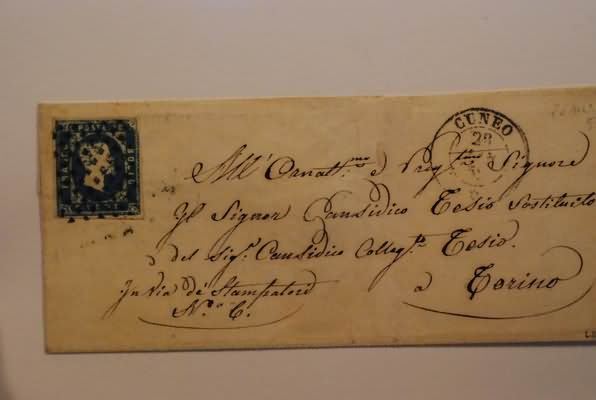 C. POSTE
CUNEO
28
All' Ornat.mo e Preg.tmo Signore
Il Signor Causidico Tesio Sostituito
del Sig.r Causidico Colleg.to Tesio.
In Via de' Stampatori
N.º 6.
a Torino